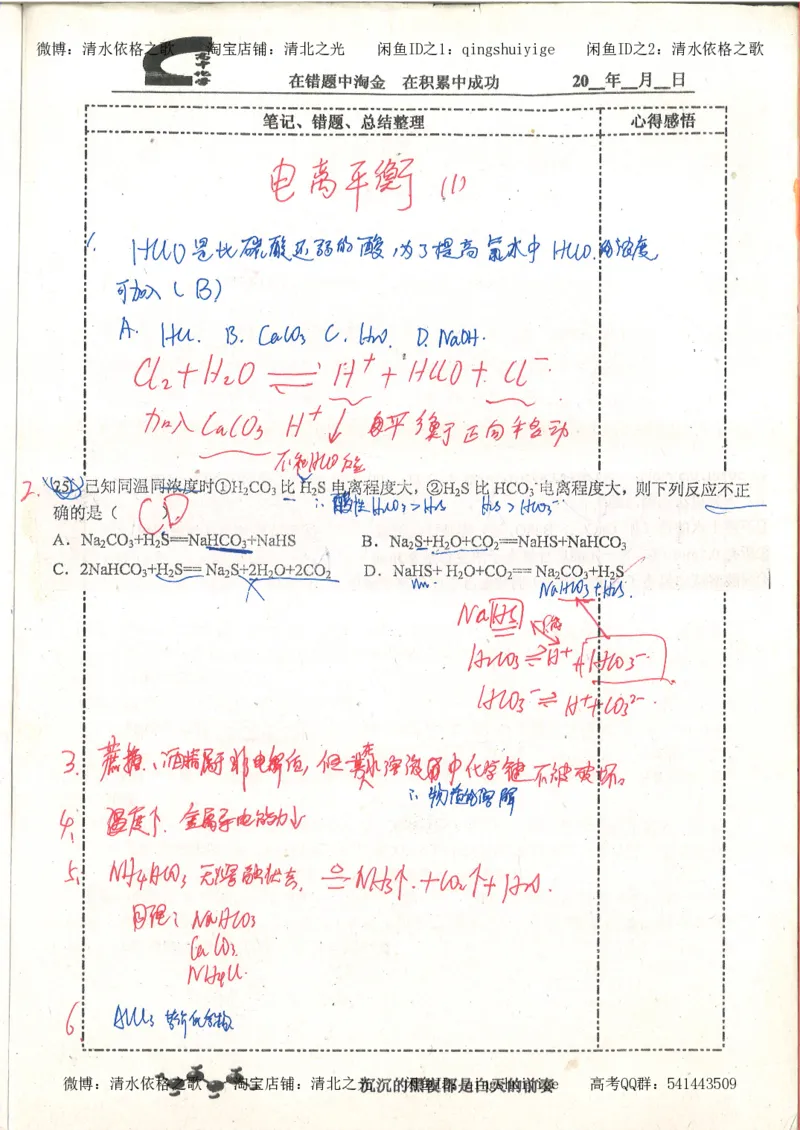 微博：清水依格之歌 淘宝店铺：清北之光 闲鱼ID之1：qingshuiyige 闲鱼ID之2：清水依格之歌
高中化学
在错题中淘金 在积累中成功 20__年__月__日
笔记、错题、总结整理 心得感悟
电离平衡 (1)
1. HClO是比碳酸还弱的酸，为了提高氯水中HClO的浓度
可加入（B）
A. HCl. B. CaCO3 C. H2O. D. NaOH.
Cl2+H2O ⇌ H⁺+HClO+Cl⁻.
加入CaCO3 H⁺↓ 平衡于正向移动
不和HClO反应
2. (25) 已知同温同浓度时①H₂CO₃ 比 H₂S 电离程度大，②H₂S 比 HCO₃⁻电离程度大，则下列反应不正
确的是（ CD ）
∴酸性H2CO3>H2S H2S>HCO3⁻
A．Na₂CO₃+H₂S==NaHCO₃+NaHS B．Na₂S+H₂O+CO₂==NaHS+NaHCO₃
C．2NaHCO₃+H₂S== Na₂S+2H₂O+2CO₂ D．NaHS+ H₂O+CO₂== Na₂CO₃+H₂S
NaHCO3+H2S.
NaHS
H2CO3⇌H⁺+HCO3⁻
HCO3⁻⇌H⁺+CO3²⁻.
3. 蔗糖、酒精属于非电解质，但溶液中化学键不被破坏。
∴物质的溶解
4. 温度↑. 金属导电能力↓
5. NH4HCO3 无熔融状态， ≜NH3↑.+CO2↑+H2O.
同理：NaHCO3
CaCO3.
NH4Cl.
6. AlCl3 共价化合物
微博：清水依格之歌 淘宝店铺：清北之光 qingshuiyige 高考QQ群：541443509